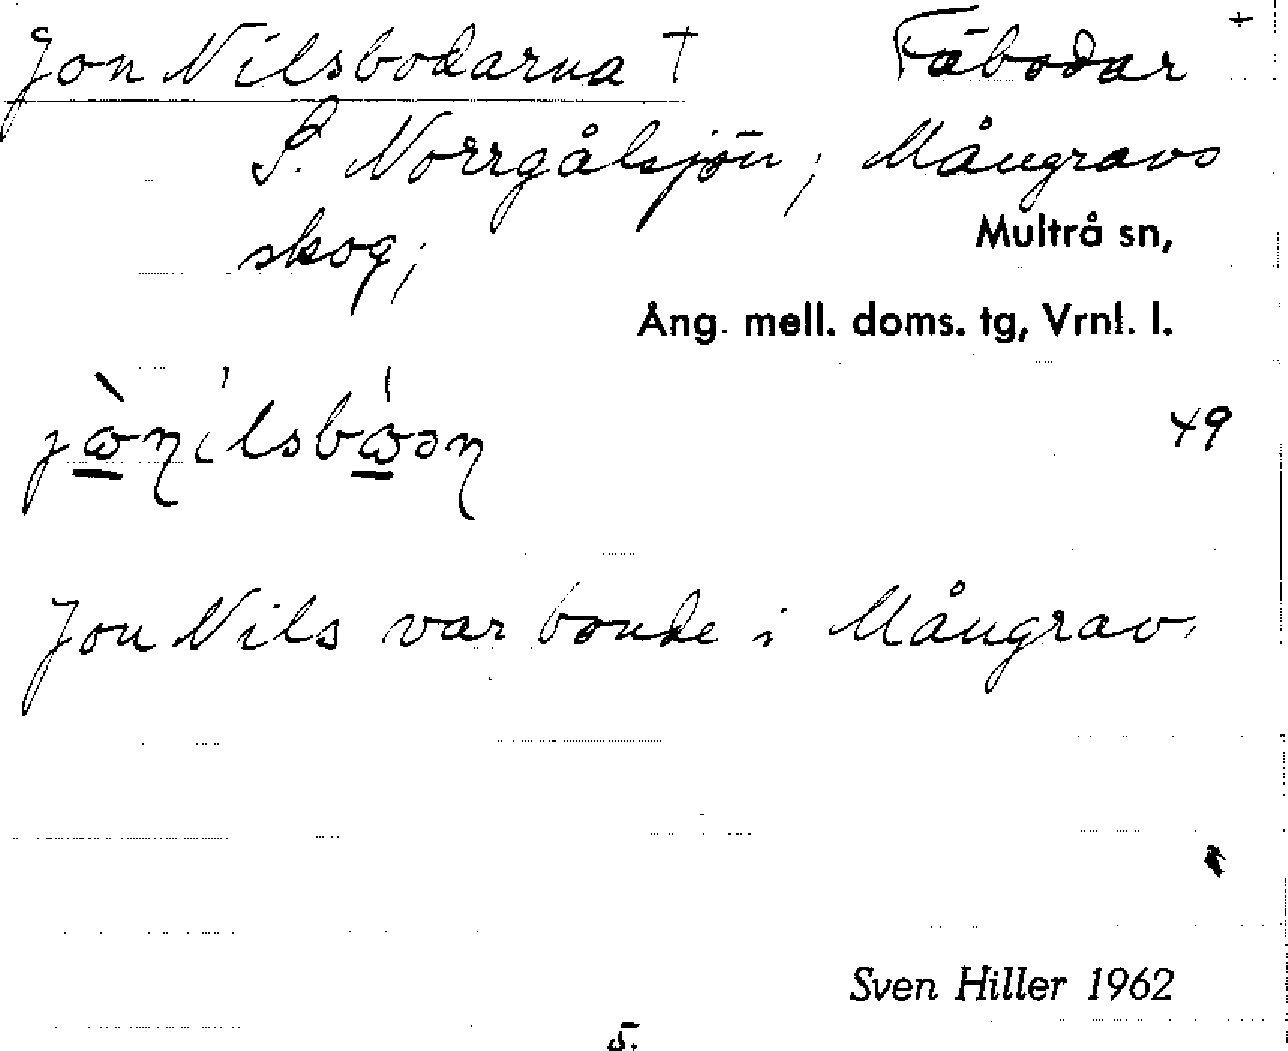 Jon Nilsbodarna † Fäbodar +
S. Norrgålsjön, Mångravs
skog,
Multrå sn,
Ång. mell. doms. tg, Vrnl. l.
49
Jon Nils var bonde i Mångrav.
Sven Hiller 1962
5.